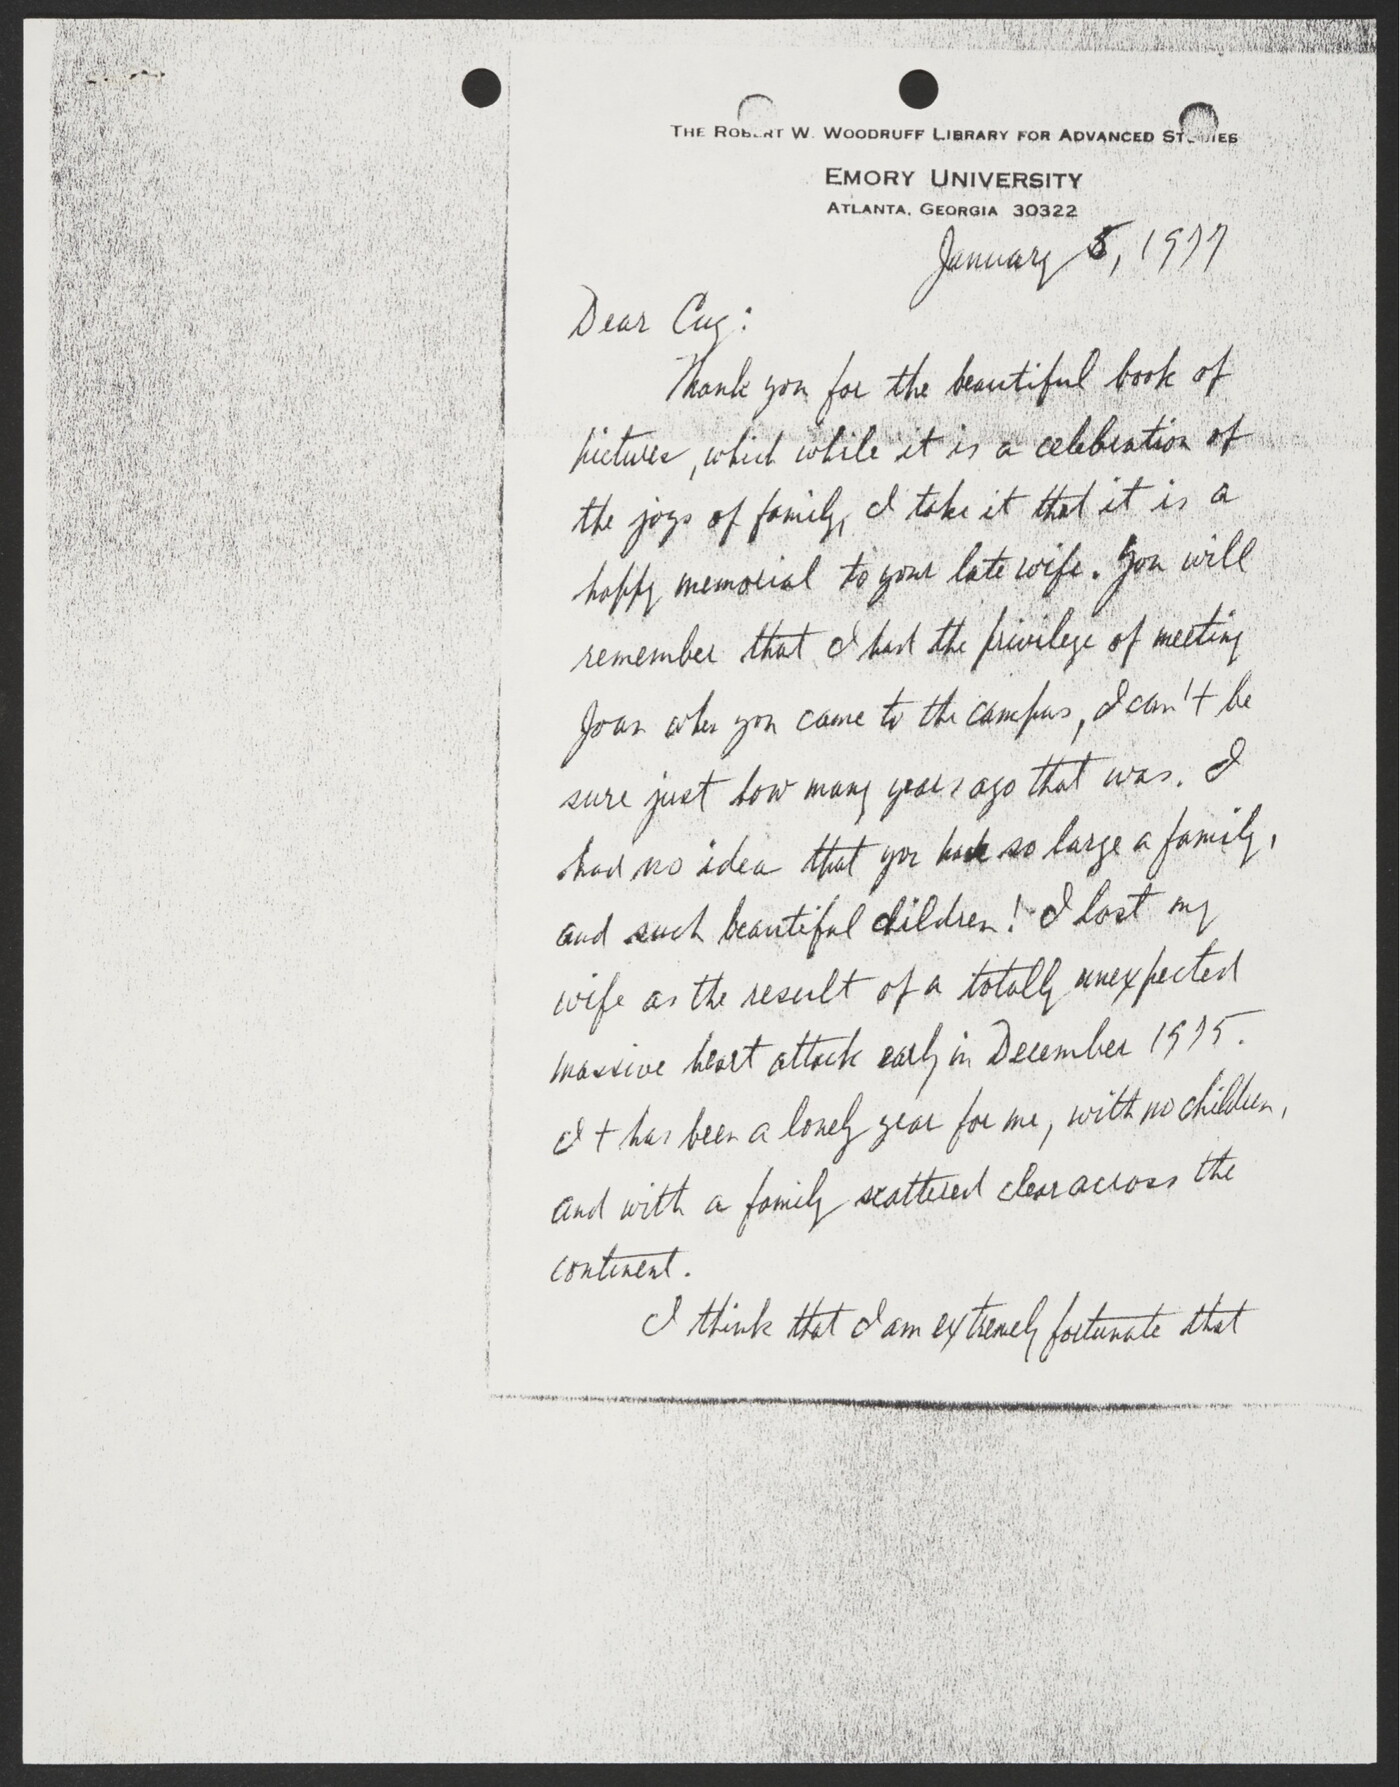 THE ROBERT W. WOODRUFF LIBRARY FOR ADVANCED STUDIES
EMORY UNIVERSITY
ATLANTA, GEORGIA 30322
January 5, 1977
Dear Cug:
Thank you for the beautiful book of
pictures, which while it is a celebration of
the joys of family, I take it that it is a
happy memorial to your late wife. You will
remember that I had the privilege of meeting
Joan when you came to the campus, I can't be
sure just how many years ago that was. I
had no idea that you had so large a family,
and such beautiful children! I lost my
wife as the result of a totally unexpected
massive heart attack early in December 1975.
It has been a lonely year for me, with no children,
and with a family scattered clear across the
continent.
I think that I am extremely fortunate that